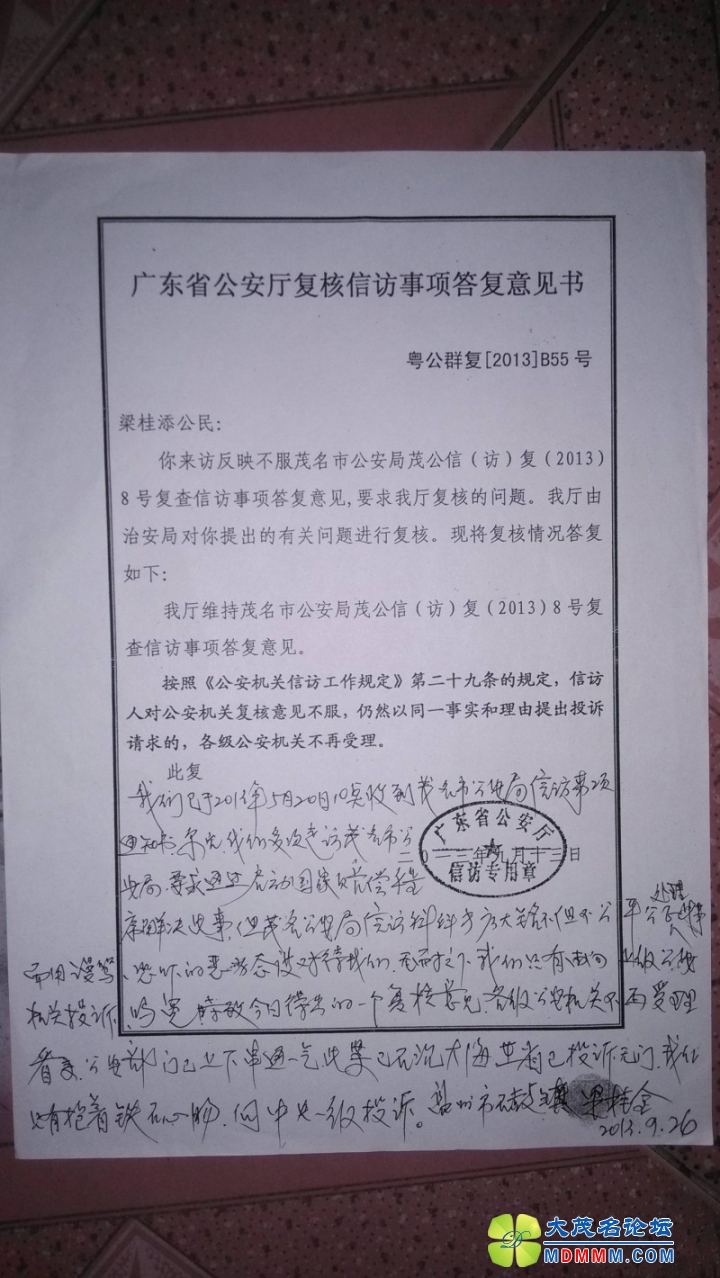 广东省公安厅复核信访事项答复意见书
粤公群复[2013]B55 号
梁桂添公民：
你来访反映不服茂名市公安局茂公信（访）复（2013）
8 号复查信访事项答复意见，要求我厅复核的问题。我厅由
治安局对你提出的有关问题进行复核。现将复核情况答复
如下：
我厅维持茂名市公安局茂公信（访）复（2013）8 号复
查信访事项答复意见。
按照《公安机关信访工作规定》第二十九条的规定，信访
人对公安机关复核意见不服，仍然以同一事实和理由提出投诉
请求的，各级公安机关不再受理。
此复
我们已于2013年5月20日收到茂名市公安局信访事项
通知书，我们多次走访茂名市公
二〇一三年九月十三日
广东省公安厅
信访专用章
安局，要求通过启动国家赔偿程
序解决此事，但茂名公安局信访科科长方大铭不但不公平公正
处理
而用谩骂、恐吓的恶劣态度对待我们，我们只有向上级公安
机关投诉，今日得出的一个复核意见，各级公安机关不再受理
看来，公安部门已上下串通一气，此案已石沉大海，已投诉无门，我们
只有抱着铁石心肠，向中央一级投诉。
2013.9.26
大茂名论坛
MDMMM.COM